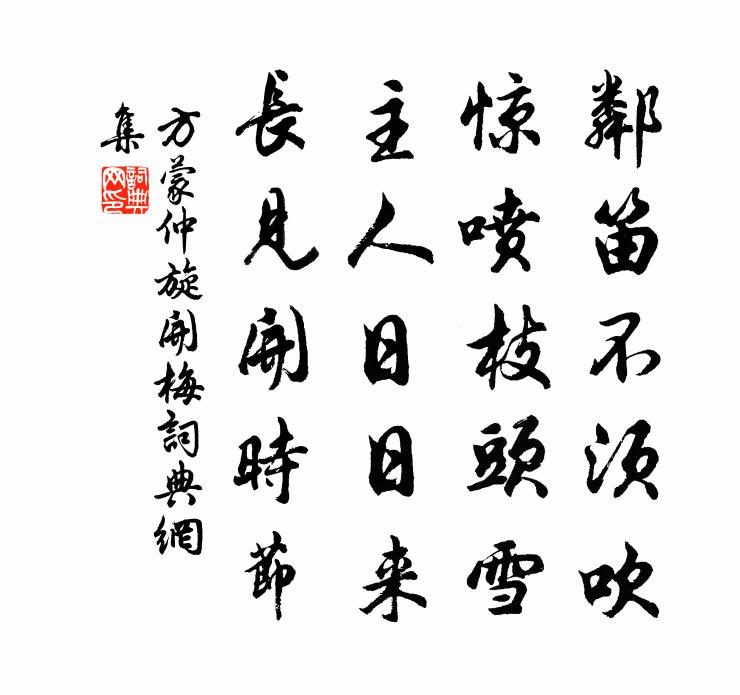 鄰笛不須吹
惊噴枝頭雪
主人日日来
長見開時節
方蒙仲旋開梅詞典網
集
詞典
网印